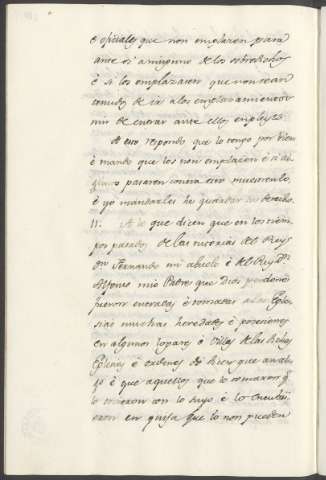 é oficiales que non emplazen para
ante si a ninguno de los sobredichos
é si los emplazaren que non sean
tenudos de ir a los emplazamientos
nin de entrar ante ellos en pleyto
A esto respondo que lo tengo por bien
é mando que los non emplacen é si al
guno pasaren contra esto muestrenlo
é yo mandarles he guardar su derecho
11. A lo que dicen que en los tiem
pos pasados de las tutorias del Rey
Dn. Fernando mi abuelo é del Rey Dn.
Alfonso mio Padre que Dios perdone
fueron entradas é tomadas a las Egle
sias muchas heredades é posesiones
en algunos logares é villas de las dichas
Eglesias é ordenes de
é que aquellos que lo tomaron q.
lo con lo suyo é lo
en guisa que lo non pueden